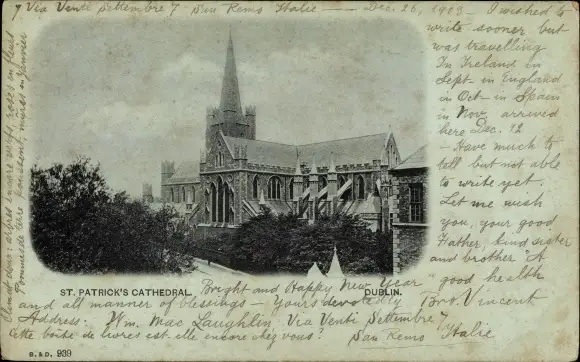 7 Via Venti Settembre 7 San Remo Italie — Dec. 26, 1903 I wished to
write sooner but
was travelling
In Ireland in
Sept - in England
in Oct - in Spain
in Nov. arrived
here Dec. 12
- Have much to
tell but not able
to write yet.
Let me wish
you, your good
Father, kind sister
and brother "A
ST. PATRICK'S CATHEDRAL. DUBLIN.
Bright and Happy New Year " good health
and all manner of blessings - Yours devotedly Bro. Vincent
Address: Wm. Mac Laughlin, Via Venti Settembre 7
Cette boite de livres est-elle encore chez vous? San Remo Italie
B. & D. 939